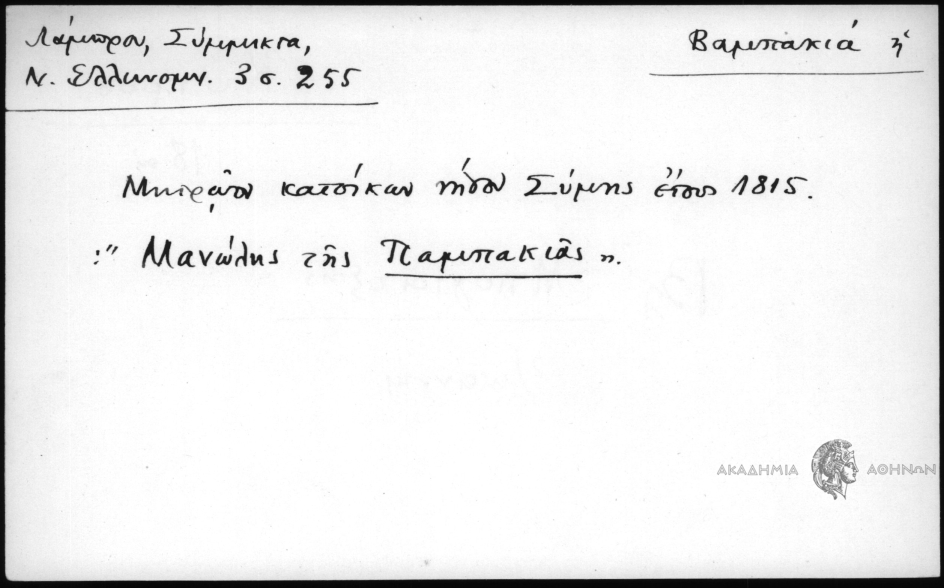 Λάμπρου, Σύμμικτα,
Ν. Ελληνομν. 3 σ. 255
Βαμπακιά ἡ
Μητρῷον κατοίκων νήσου Σύμης ἔτους 1815.
:" Μανώλης τῆς Παμπακιᾶς ".
ΑΚΑΔΗΜΙΑ ΑΘΗΝΩΝ